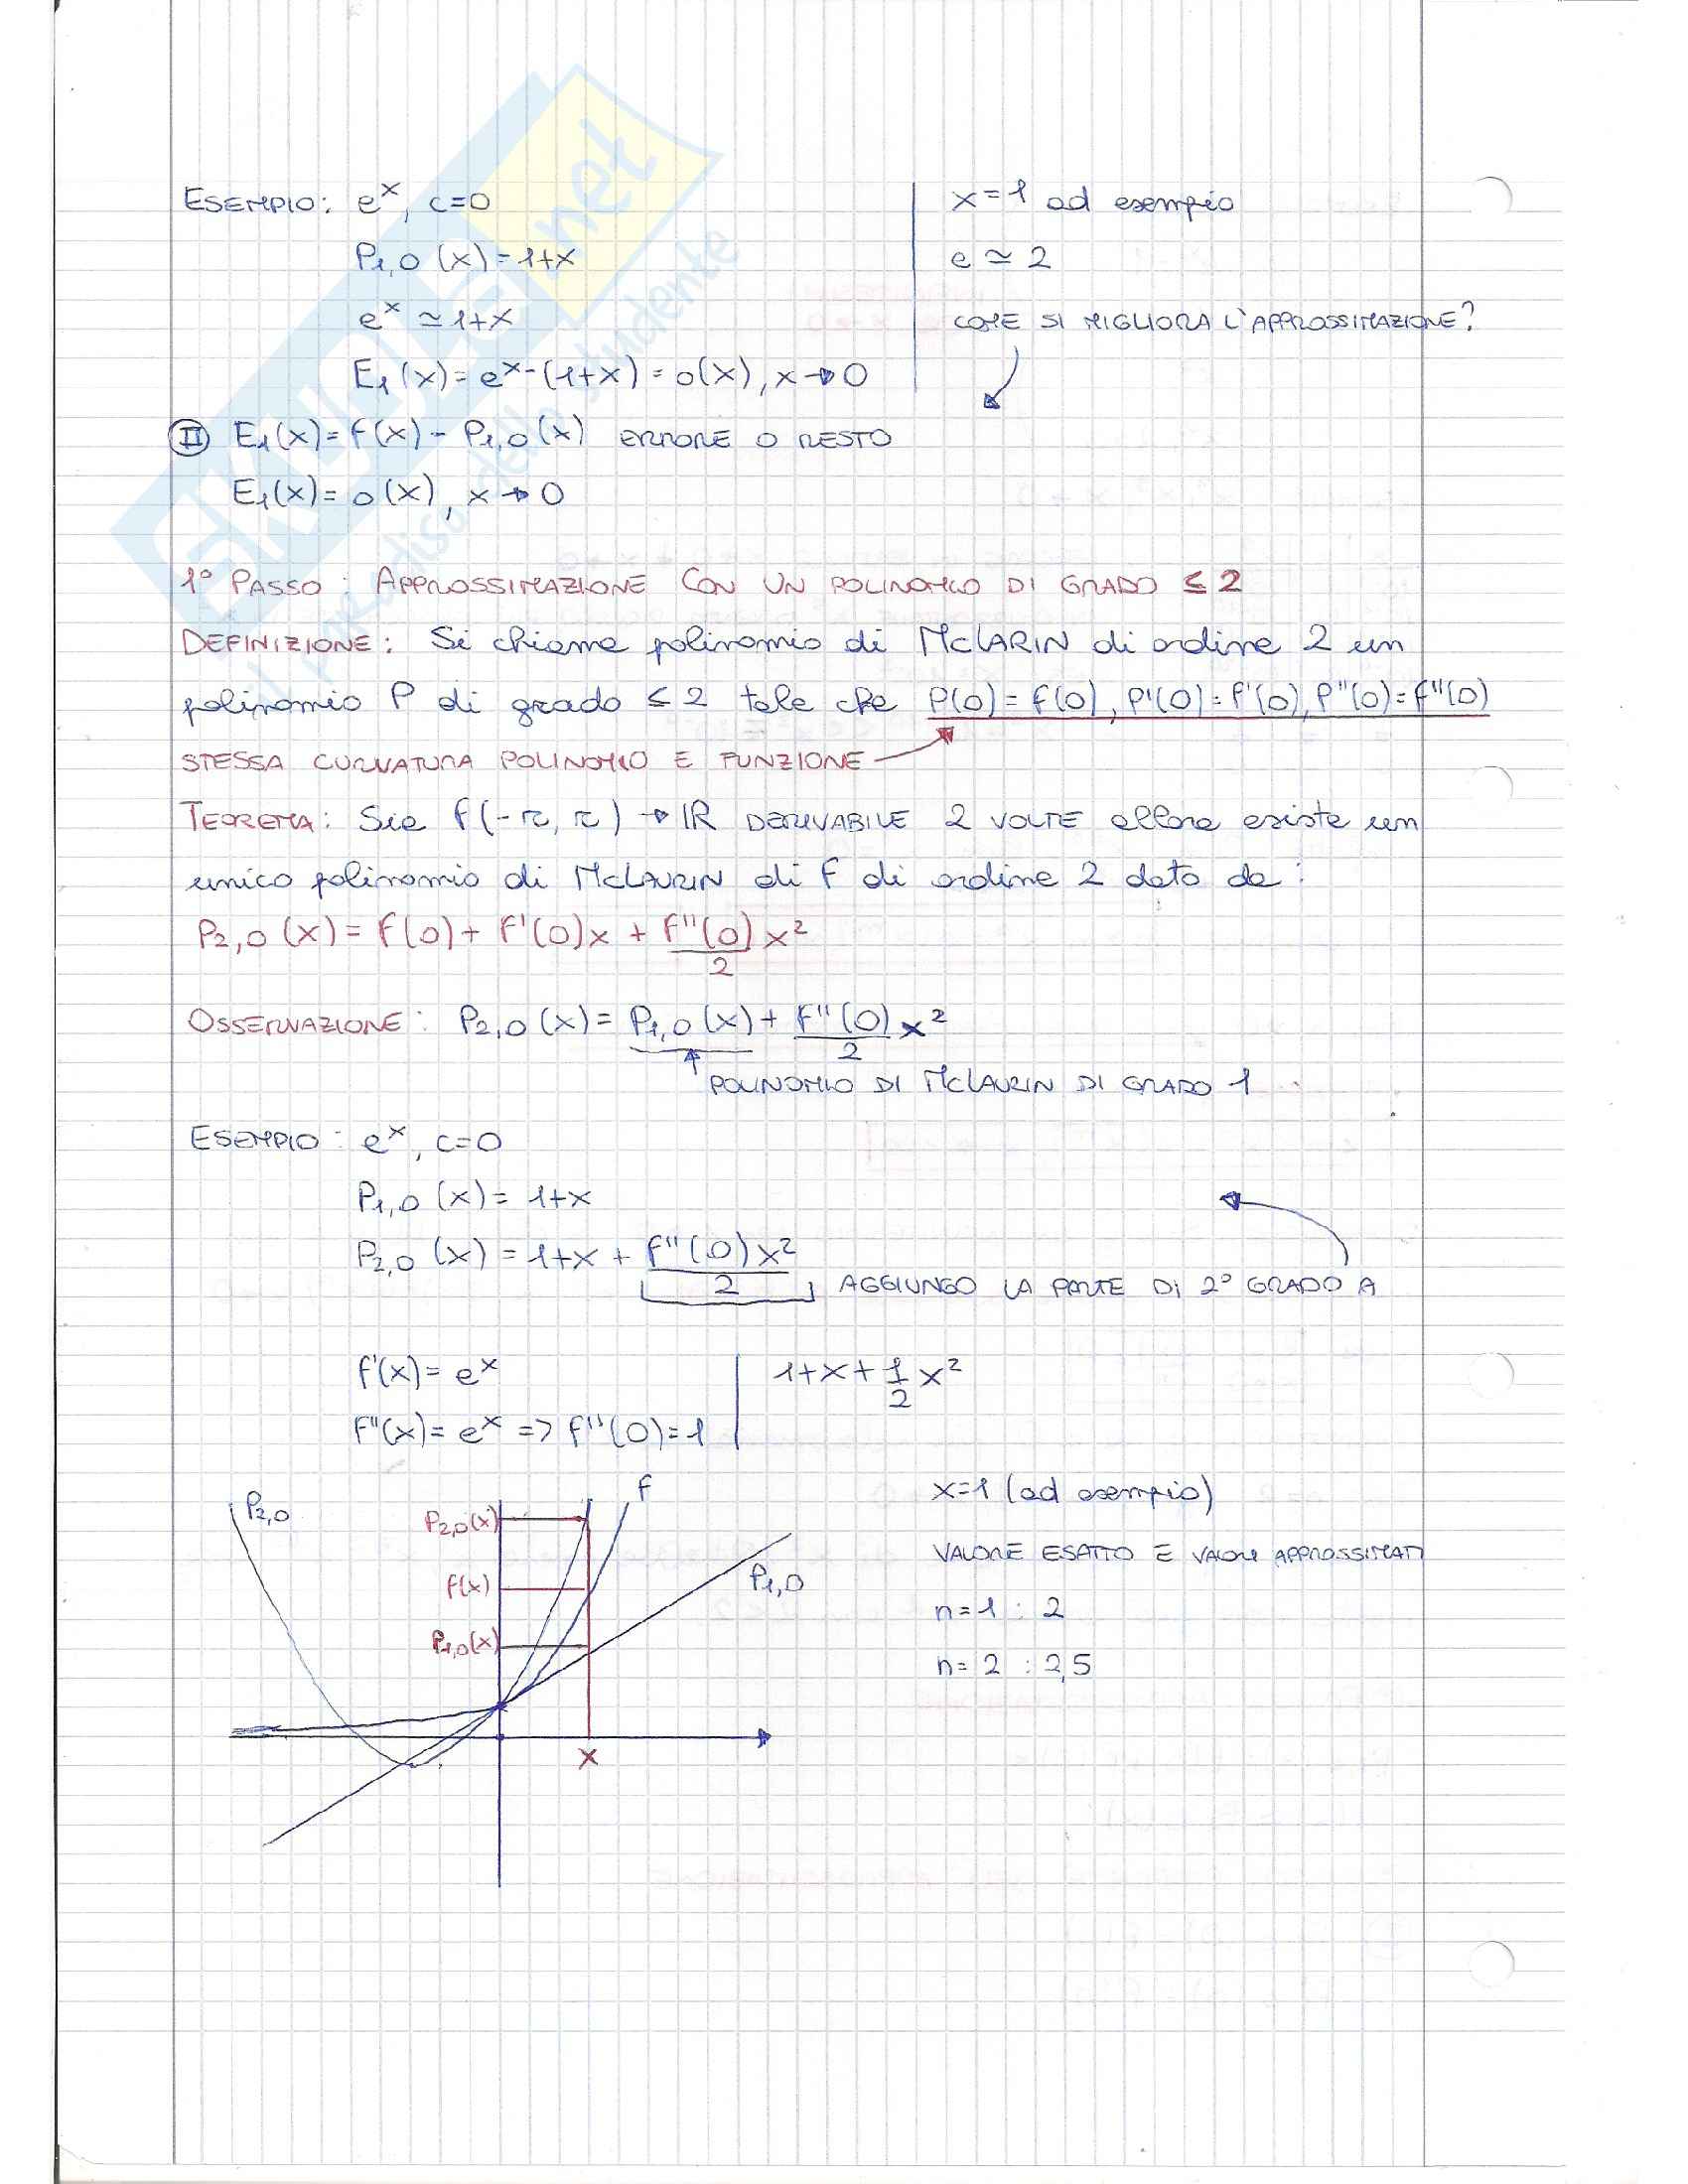 ESEMPIO: eˣ, c=0
P₁,₀(x)=1+x
eˣ ≃ 1+x
E₁(x)= eˣ-(1+x) = o(x), x→0
x=1 ad esempio
e ≃ 2
COME SI MIGLIORA L'APPROSSIMAZIONE?
II E₁(x)= f(x) - P₁,₀(x) ERRORE O RESTO
E₁(x)= o(x), x→0
1° PASSO: APPROSSIMAZIONE CON UN POLINOMIO DI GRADO ≤ 2
DEFINIZIONE: Si chiama polinomio di McLARIN di ordine 2 un
polinomio P di grado ≤ 2 tale che P(0)=f(0), P'(0)=f'(0), P''(0)=f''(0)
STESSA CURVATURA POLINOMIO E FUNZIONE
TEOREMA: Sia f(-r, r) → ℝ DERIVABILE 2 VOLTE allora esiste un
unico polinomio di McLAURIN di f di ordine 2 dato da:
P₂,₀(x)= f(0)+ f'(0)x + f''(0)/2 x²
OSSERVAZIONE: P₂,₀(x)= P₁,₀(x)+ f''(0)/2 x²
POLINOMIO DI McLAURIN DI GRADO 1
ESEMPIO: eˣ, c=0
P₁,₀(x)= 1+x
P₂,₀(x)= 1+x + f''(0)x²/2 AGGIUNGO LA PARTE DI 2° GRADO A
f'(x)= eˣ
f''(x)= eˣ => f''(0)=1
1+x+1/2 x²
P₂,₀
P₂,₀(x)
f
f(x)
P₁,₀
P₁,₀(x)
x
x=1 (ad esempio)
VALORE ESATTO E VALORI APPROSSIMATI
n=1 : 2
n=2 : 2,5
SKUOLA.net
il paradiso dello studente